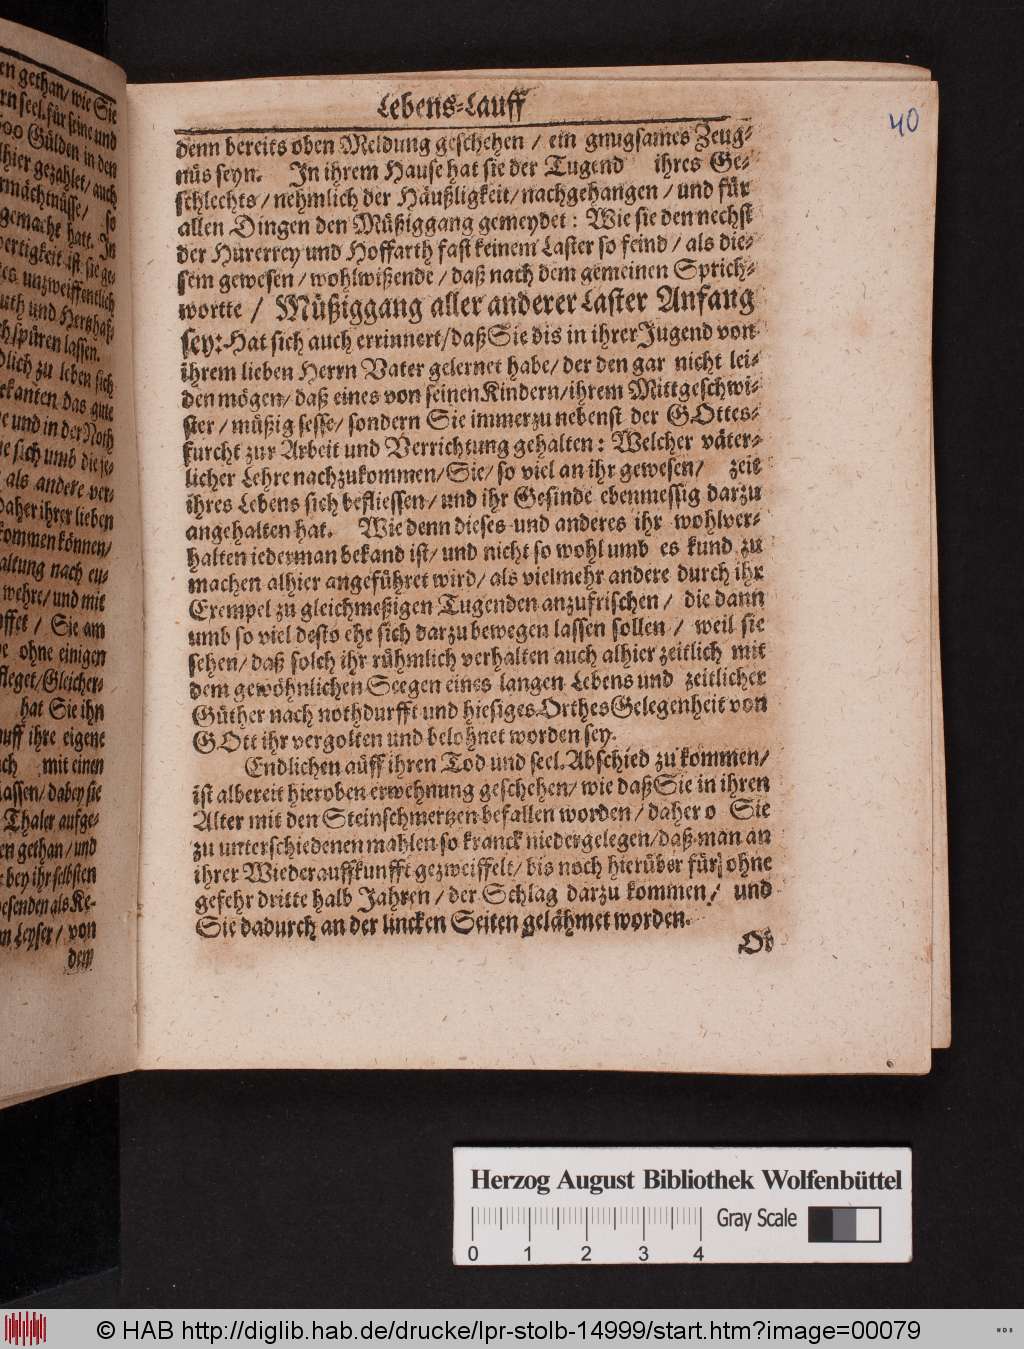 en gethan/ wie Sie
rn seel. für seine und
00 Gülden in den
lhier gezahlet/ auch
rmächtnüsse/ so
gemacht hatt. In
vertigkeit ist sie ge-
es unzweiffentlich
uth und Hertzhaf-
ch spüren lassen.
dlich zu leben sich
ekanten das gute
e und in der Noth
ie sich umb die je-
als andere ver-
daher ihrer lieben
kommen können/
altung nach eu-
wehre/ und mit
uffet / Sie am
e ohne einigen
fleget/ Gleicher-
hat Sie ihn
uff ihre eigene
ch mit einen
lassen/ dabey sie
Thaler aufge-
en gethan/ und
bey ihr selbsten
esenden als Ke-
n Leyser/ von
dem
Lebens-Lauff
40
denn bereits oben Meldung geschehen / ein gnugsames Zeug-
nüs seyn. In ihrem Hause hat sie der Tugend ihres Ge-
schlechts / nehmlich der Häußligkeit / nachgehangen / und für
allen Dingen den Müßiggang gemeydet : Wie sie den nechst
der Hurerrey und Hoffarth fast keinem Laster so feind / als die-
sem gewesen / wohlwißende / daß nach dem gemeinen Sprich-
wortte / Müßiggang aller anderer Laster Anfang
sey: Hat sich auch errinnert/ daß Sie dis in ihrer Jugend von
ihrem lieben Herrn Vater gelernet habe/ der den gar nicht lei-
den mögen/ daß eines von seinen Kindern/ ihrem Mittgeschwi-
ster / müßig sesse/ sondern Sie immerzu nebenst der GOttes-
furcht zur Arbeit und Verrichtung gehalten : Welcher väter-
licher Lehre nachzukommen/ Sie/ so viel an ihr gewesen/ zeit
ihres Lebens sich befliessen/ und ihr Gesinde ebenmessig darzu
angehalten hat. Wie denn dieses und anderes ihr wohlver-
halten iederman bekand ist/ und nicht so wohl umb es kund zu
machen alhier angeführet wird/ als vielmehr andere durch ihr
Exempel zu gleichmeßigen Tugenden anzufrischen / die dann
umb so viel desto ehe sich darzu bewegen lassen sollen / weil sie
sehen/ daß solch ihr rühmlich verhalten auch alhier zeitlich mit
dem gewöhnlichen Seegen eines langen Lebens und zeitlicher
Güther nach nothdurfft und hiesiges Orthes Gelegenheit von
GOtt ihr vergolten und belohnet worden sey.
Endlichen auff ihren Tod und seel. Abschied zu kommen/
ist albereit hieroben erwehnung geschehen/ wie daß Sie in ihren
Alter mit den Steinschmertzen befallen worden / daher o Sie
zu unterschiedenen mahlen so kranck niedergelegen/ daß man an
ihrer Wiederauffkunfft gezweiffelt/ bis noch hierüber für/ ohne
gefehr dritte halb Jahren / der Schlag darzu kommen/ und
Sie dadurch an der lincken Seiten gelähmet worden.
Ob
Herzog August Bibliothek Wolfenbüttel
Gray Scale
0 1 2 3 4
© HAB http://diglib.hab.de/drucke/lpr-stolb-14999/start.htm?image=00079